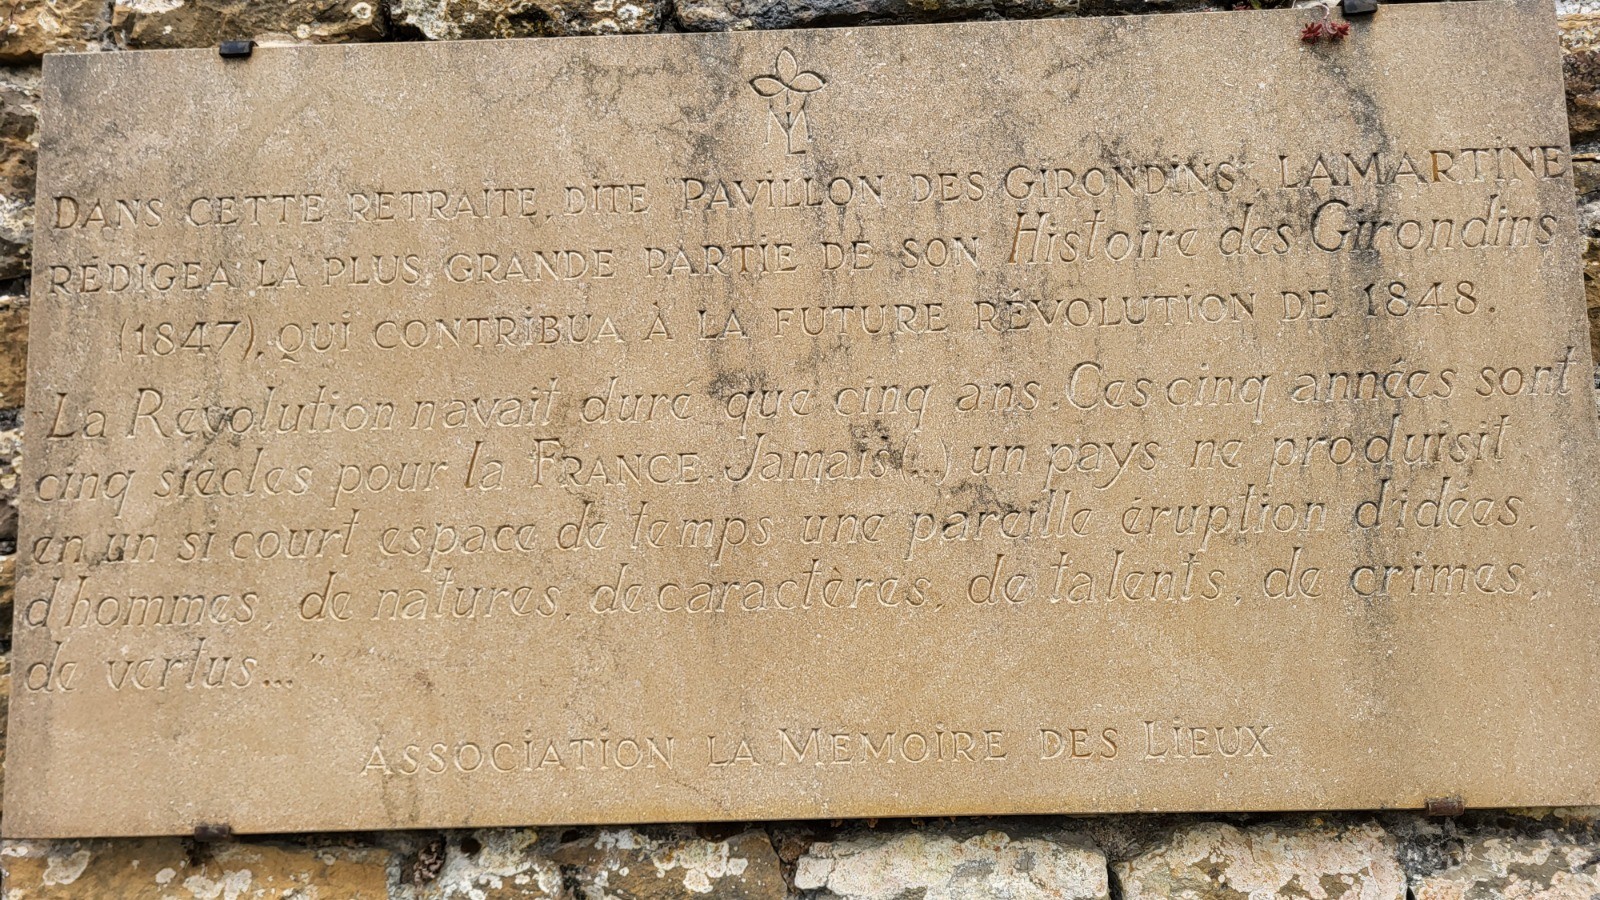 ML
DANS CETTE RETRAITE, DITE "PAVILLON DES GIRONDINS", LAMARTINE
RÉDIGEA LA PLUS GRANDE PARTIE DE SON Histoire des Girondins
(1847), QUI CONTRIBUA À LA FUTURE RÉVOLUTION DE 1848.
"La Révolution n'avait duré que cinq ans. Ces cinq années sont
cinq siècles pour la FRANCE. Jamais (...) un pays ne produisit
en un si court espace de temps une pareille éruption d'idées,
d'hommes, de natures, de caractères, de talents, de crimes,
de vertus..."
ASSOCIATION LA MÉMOIRE DES LIEUX